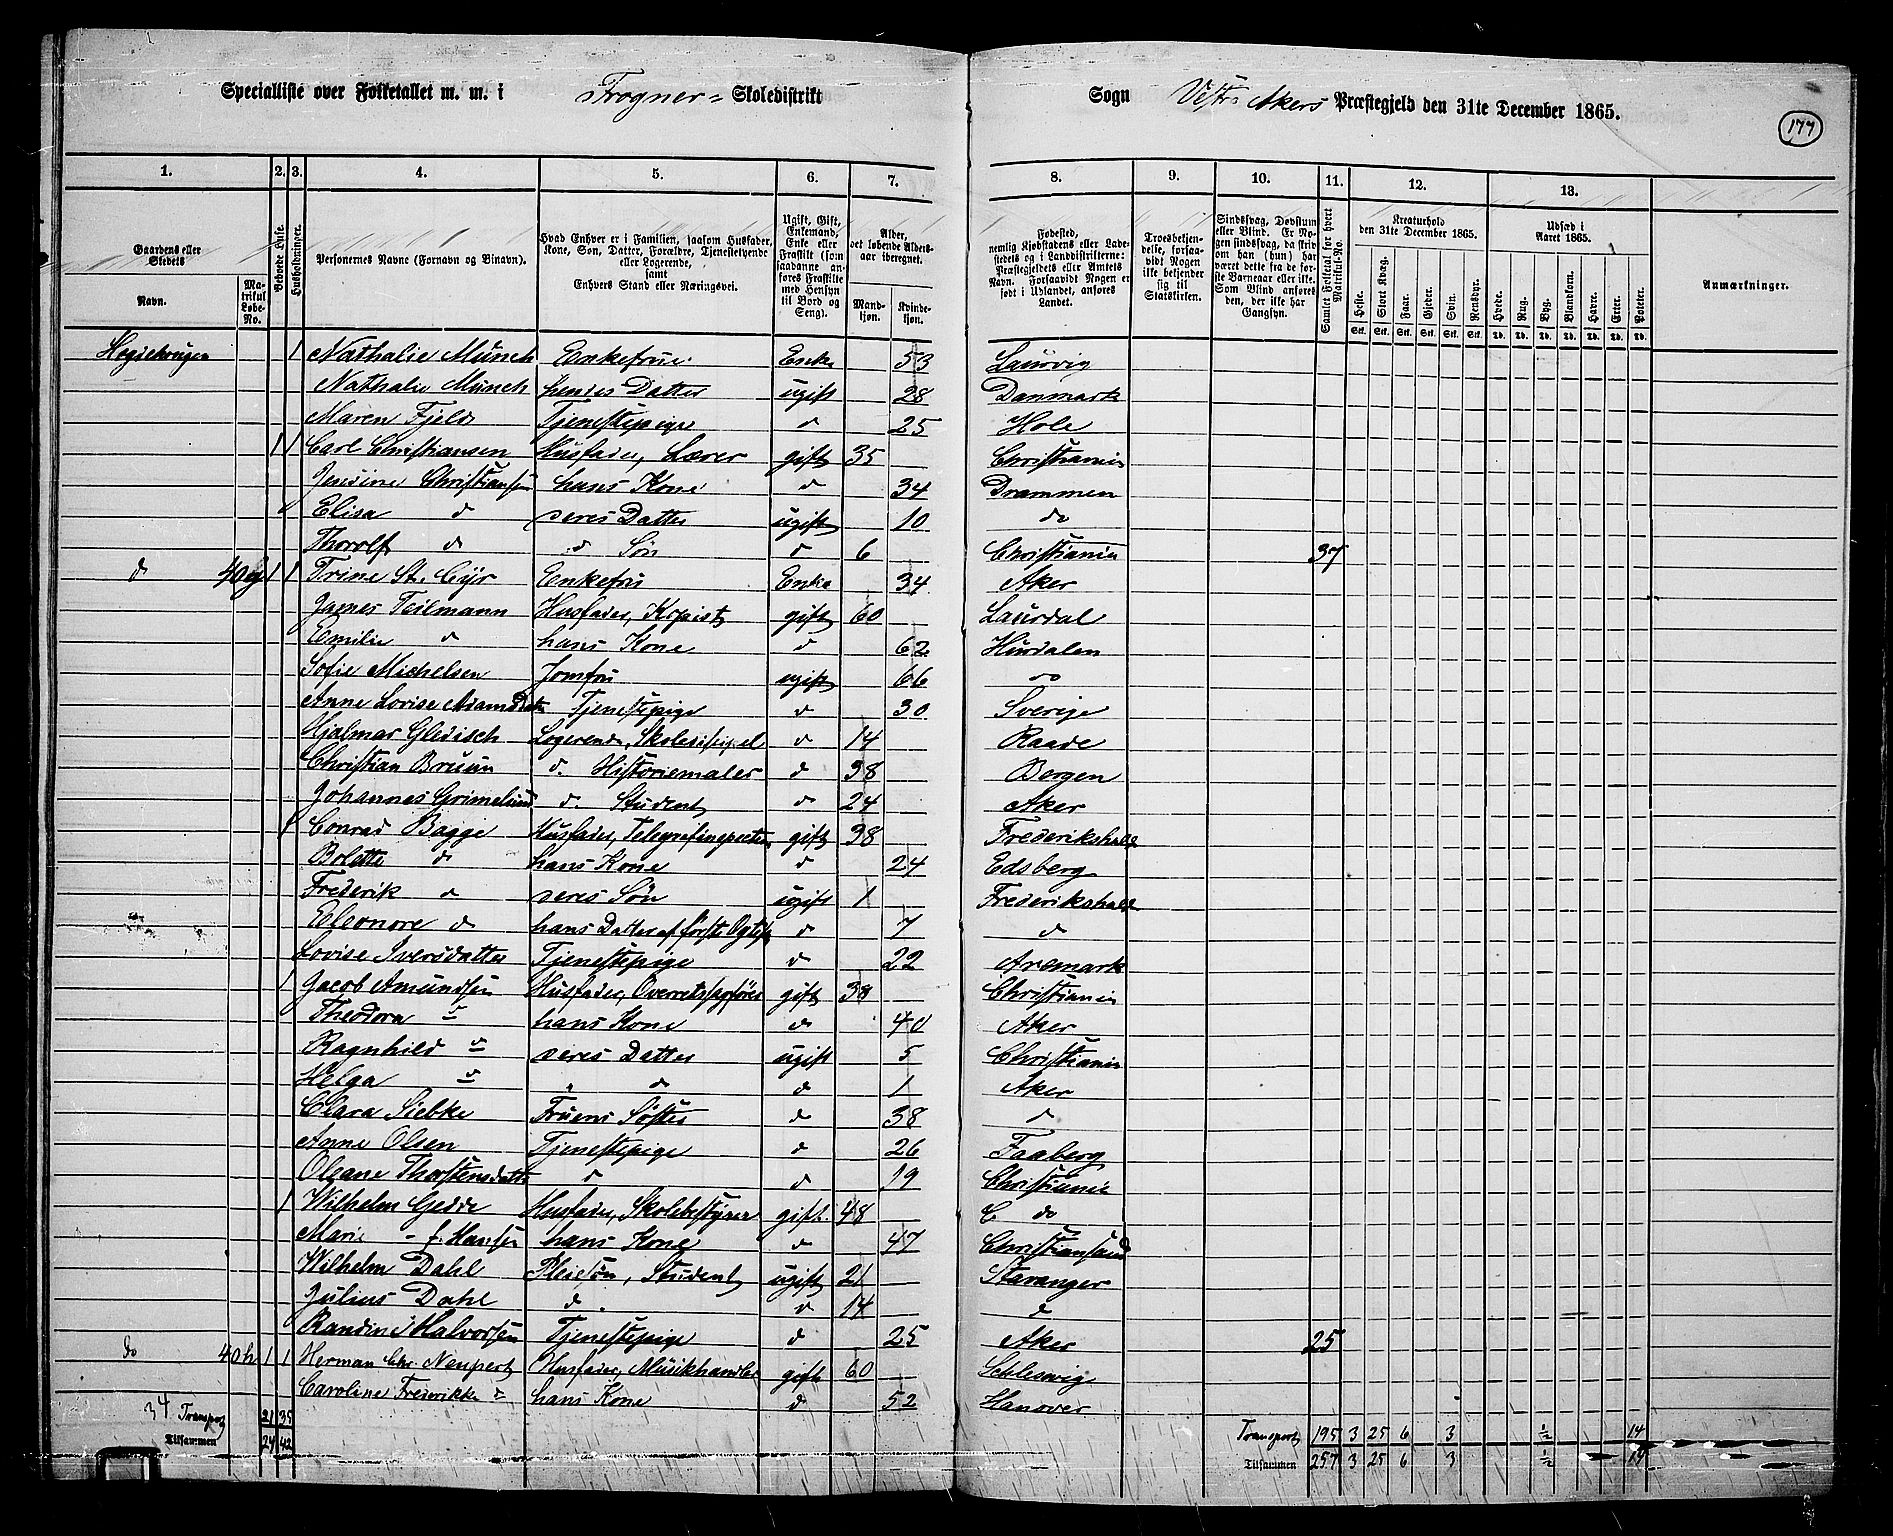 Specialliste over Folketallet m. m. i Frogner Skoledistrikt Sogn Vestre Akers Præstegjeld den 31te December 1865.
177
1. 2. 3. 4. 5. 6. 7. 8. 9. 10. 11. 12. 13.
Gaardens eller Stedets
Navn.
Matrikul Løbe-No.
Beboede Huse.
Husholdninger.
Personernes Navne (Fornavn og Binavn).
Hvad Enhver er i Familien, saasom Husfader, Kone, Søn, Datter, Forældre, Tjenestetyende eller Logerende,
samt
Enhvers Stand eller Næringsvei.
Ugift, Gift, Enkemand, Enke eller Fraskilt (som saadanne anføres Fraskilte med Hensyn til Bord og Seng).
Alder, det løbende Aldersaar iberegnet.
Mandkjøn. Kvindekjøn.
Fødested, nemlig Kjøbstadens eller Ladestedets og i Landdistrikterne: Præstegjeldets eller Amtets Navn. Forsaavidt Nogen er født i Udlandet, anføres Landet.
Troesbekjendelse, forsaavidt Nogen ikke bekjender sig til Statskirken.
Sindssvag, Døvstum eller Blind. Er Nogen sindssvag, da skriv om han (hun) har været dette fra de første Barneaar eller ikke. Som Blind anføres den, der ikke har Gangsyn.
Samlet Folketal for hvert Matrikul-No.
Kreaturhold den 31te December 1865.
Heste. Stort Kvæg. Faar. Gjeder. Svin. Rensdyr.
Stk. Stk. Stk. Stk. Stk. Stk.
Udsæd i Aaret 1865.
Hvede. Rug. Byg. Blandkorn. Havre. Erter. Poteter.
Td. Td. Td. Td. Td. Td. Td.
Anmærkninger.
Hegdehaugen 1 Nathalie Münch Enkefrue Enke 53 Laurvig
Nathalie Münch hendes Datter ugift 28 Danmark
Maren Fjeld Tjenestepige d 25 Hole
1 1 Carl Christiansen Husfader, Lærer gift 35 Christiania
Jensine Christiansen hans Kone d 34 Drammen
Elisa d deres Datter ugift 10 do
Thorolf d d Søn d 6 Christiania 37
d 40g 1 1 Trine St. Cyr Enkefru Enke 34 Aker
James Teilmann Husfader, Kopist gift 60 Laurdal
Emilie d hans Kone d 62 Hurdalen
Sofie Michelsen Jomfru ugift 66 do
Anne Lovise Adamsdatter Tjenestepige d 30 Sverige
Hjalmar Gleditsch Logerende, Skoledisipel d 14 Raade
Christian Bruun d. Historiemaler d 38 Bergen
Johannes Grimelund d. Student d 24 Aker
1 Conrad Bagge Husfader, Telegrafinspecteur gift 38 Frederikshald
Bolette d hans Kone d 24 Edsberg
Frederik d deres Søn ugift 1 Frederikshald
Eleonore d hans Datter af første Ægtesk d 7 d
Lovise Iversdatter Tjenestepige d 22 Aremark
1 Jacob Amundsen Husfader, Overretssagfører gift 38 Christiania
Theodora d hans Kone d 40 Aker
Ragnhild d deres Datter ugift 5 Christiania
Helga d " d d 1 Aker
Clara Siebke Fruens Søster d 38 d
Anne Olsen Tjenestepige d 26 Faaberg
Oleane Thorstensdatter d d 19 Christiania
1 Wilhelm Gedde Husfader, Skolebestyrer gift 48 C do
Marie - f. Hansen hans Kone d 47 Christiansand
Wilhelm Dahl Pleiesøn, Student ugift 21 Stavanger
Julius Dahl d. d 14 d
Randine Halvorsen Tjenestepige d 25 Aker 25
do 40h 1 1 Herman Chr. Neupert Husfader, Musikhandler gift 60 Schleswig
Caroline Frederikke d hans Kone d 52 Hanover
34 Transport 21 35 Transport 195 3 25 6 3 ½ 14
Tilsammen 24 42 Tilsammen 257 3 25 6 3 ½ 14